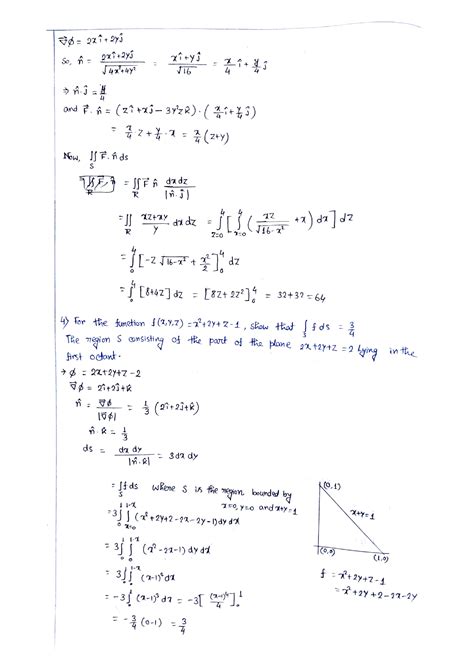 ∇⃗φ = 2xî+2yĵ
So, n̂ = (2xî+2yĵ)/√(4x²+4y²) = (xî+yĵ)/√16 = x/4 î + y/4 ĵ
⇒ n̂.ĵ = y/4
and F⃗.n̂ = (zî+xĵ-3y²zk̂).(x/4 î + y/4 ĵ)
= x/4 z + y/4 . x = x/4 (z+y)
Now, ∬_S F⃗.n̂ ds
= ∬_R F⃗.n̂ dxdz/|n̂.ĵ|
= ∬_R (xz+xy)/y dxdz = ∫_{z=0}^4 [∫_{x=0}^4 (xz/√(16-x²) + x) dx] dz
= ∫_0^4 [-z√(16-x²) + x²/2]_0^4 dz
= ∫_0^4 [8+4z] dz = [8z+2z²]_0^4 = 32+32 = 64
4) For the function f(x,y,z) = x²+2y+z-1, show that ∫_S f ds = 3/4
The region S consisting of the part of the plane 2x+2y+z=2 lying in the
first octant.
→ φ = 2x+2y+z-2
∇⃗φ = 2î+2ĵ+k̂
n̂ = ∇⃗φ/|∇⃗φ| = 1/3 (2î+2ĵ+k̂)
n̂.k̂ = 1/3
ds = dxdy/|n̂.k̂| = 3dxdy
= ∬_S f ds where S is the region bounded by
x=0, y=0 and x+y=1
= 3∫_{x=0}^1 ∫_0^{1-x} (x²+2y+2-2x-2y-1) dy dx
= 3∫_0^1 ∫_0^{1-x} (x²-2x-1) dy dx
= 3∫_0^1 ∫_0^{1-x} (x-1)² dx
= -3∫_0^1 (x-1)³ dx = -3[(x-1)⁴/4]_0^1
= -3/4 (0-1) = 3/4
(0,1)
x+y=1
(0,0)
(1,0)
f = x²+2y+z-1
= x²+2y+2-2x-2y